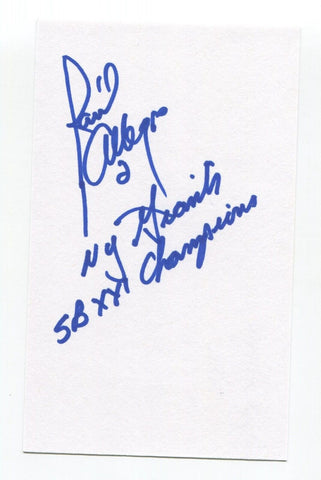 Raúl
Allegre
2
NY Giants
SB XXI Champions